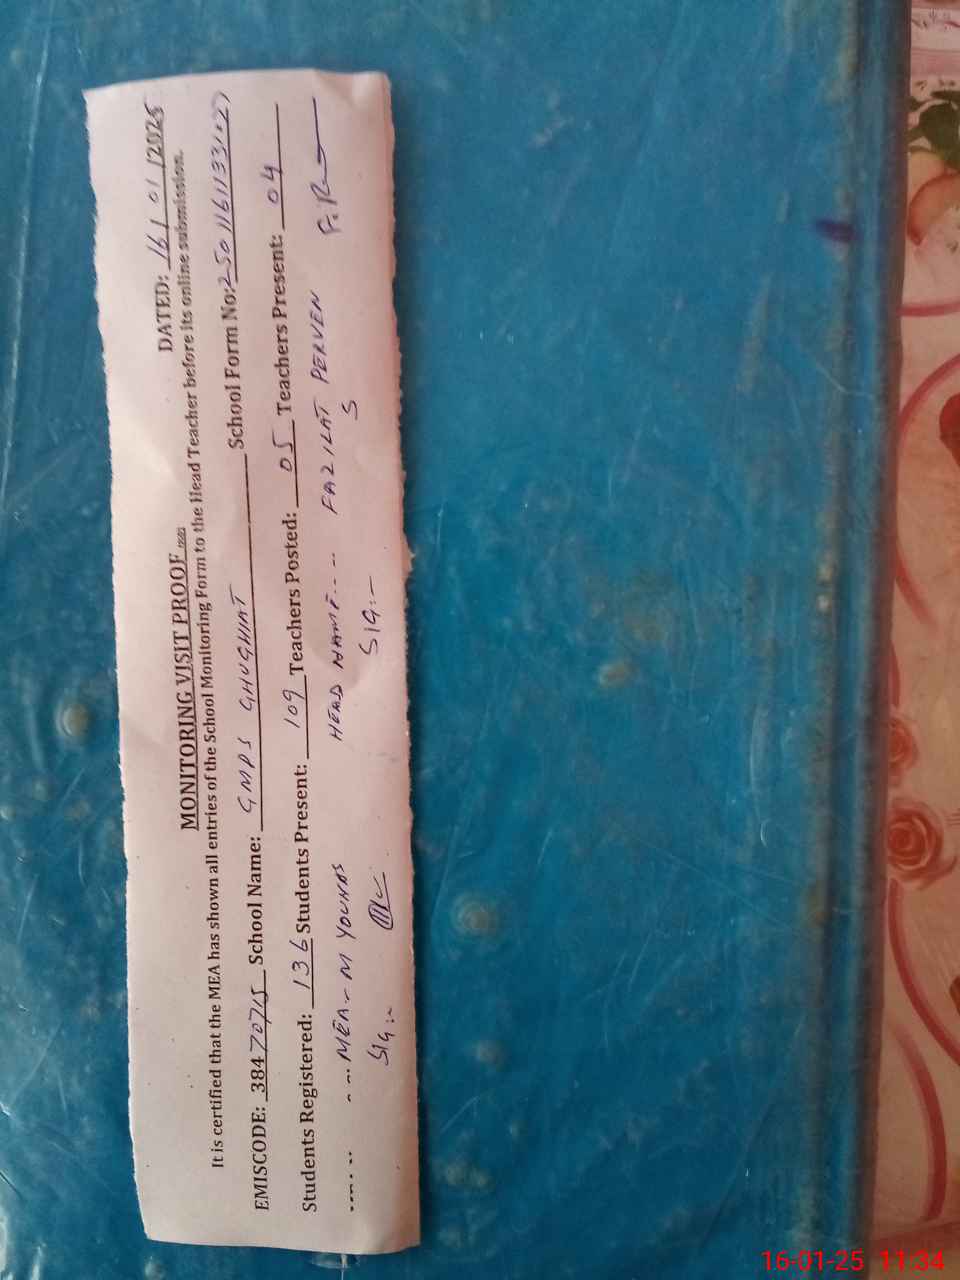 DATED: 16/01/2025
MONITORING VISIT PROOF
It is certified that the MEA has shown all entries of the School Monitoring Form to the Head Teacher before its online submission.
EMISCODE: 38470715 School Name: GMPS GHUGHIAT School Form No: 2501161133127
Students Registered: 136 Students Present: 109 Teachers Posted: 05 Teachers Present: 04
MEA - M YOUNAS HEAD NAME.... FAZILAT PERVEN
Sig:- SIG:- S
16-01-25 11:34